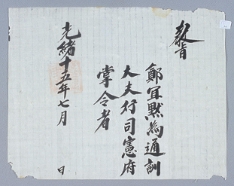 敎旨
鄭宜默為通訓
大夫行司憲府
掌令者
光緒十五年七月　日